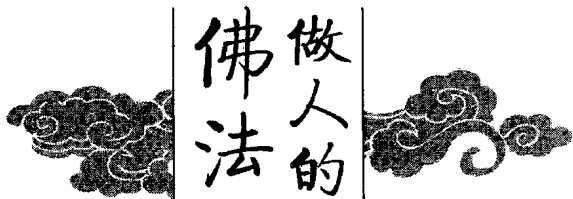 做人的
佛法